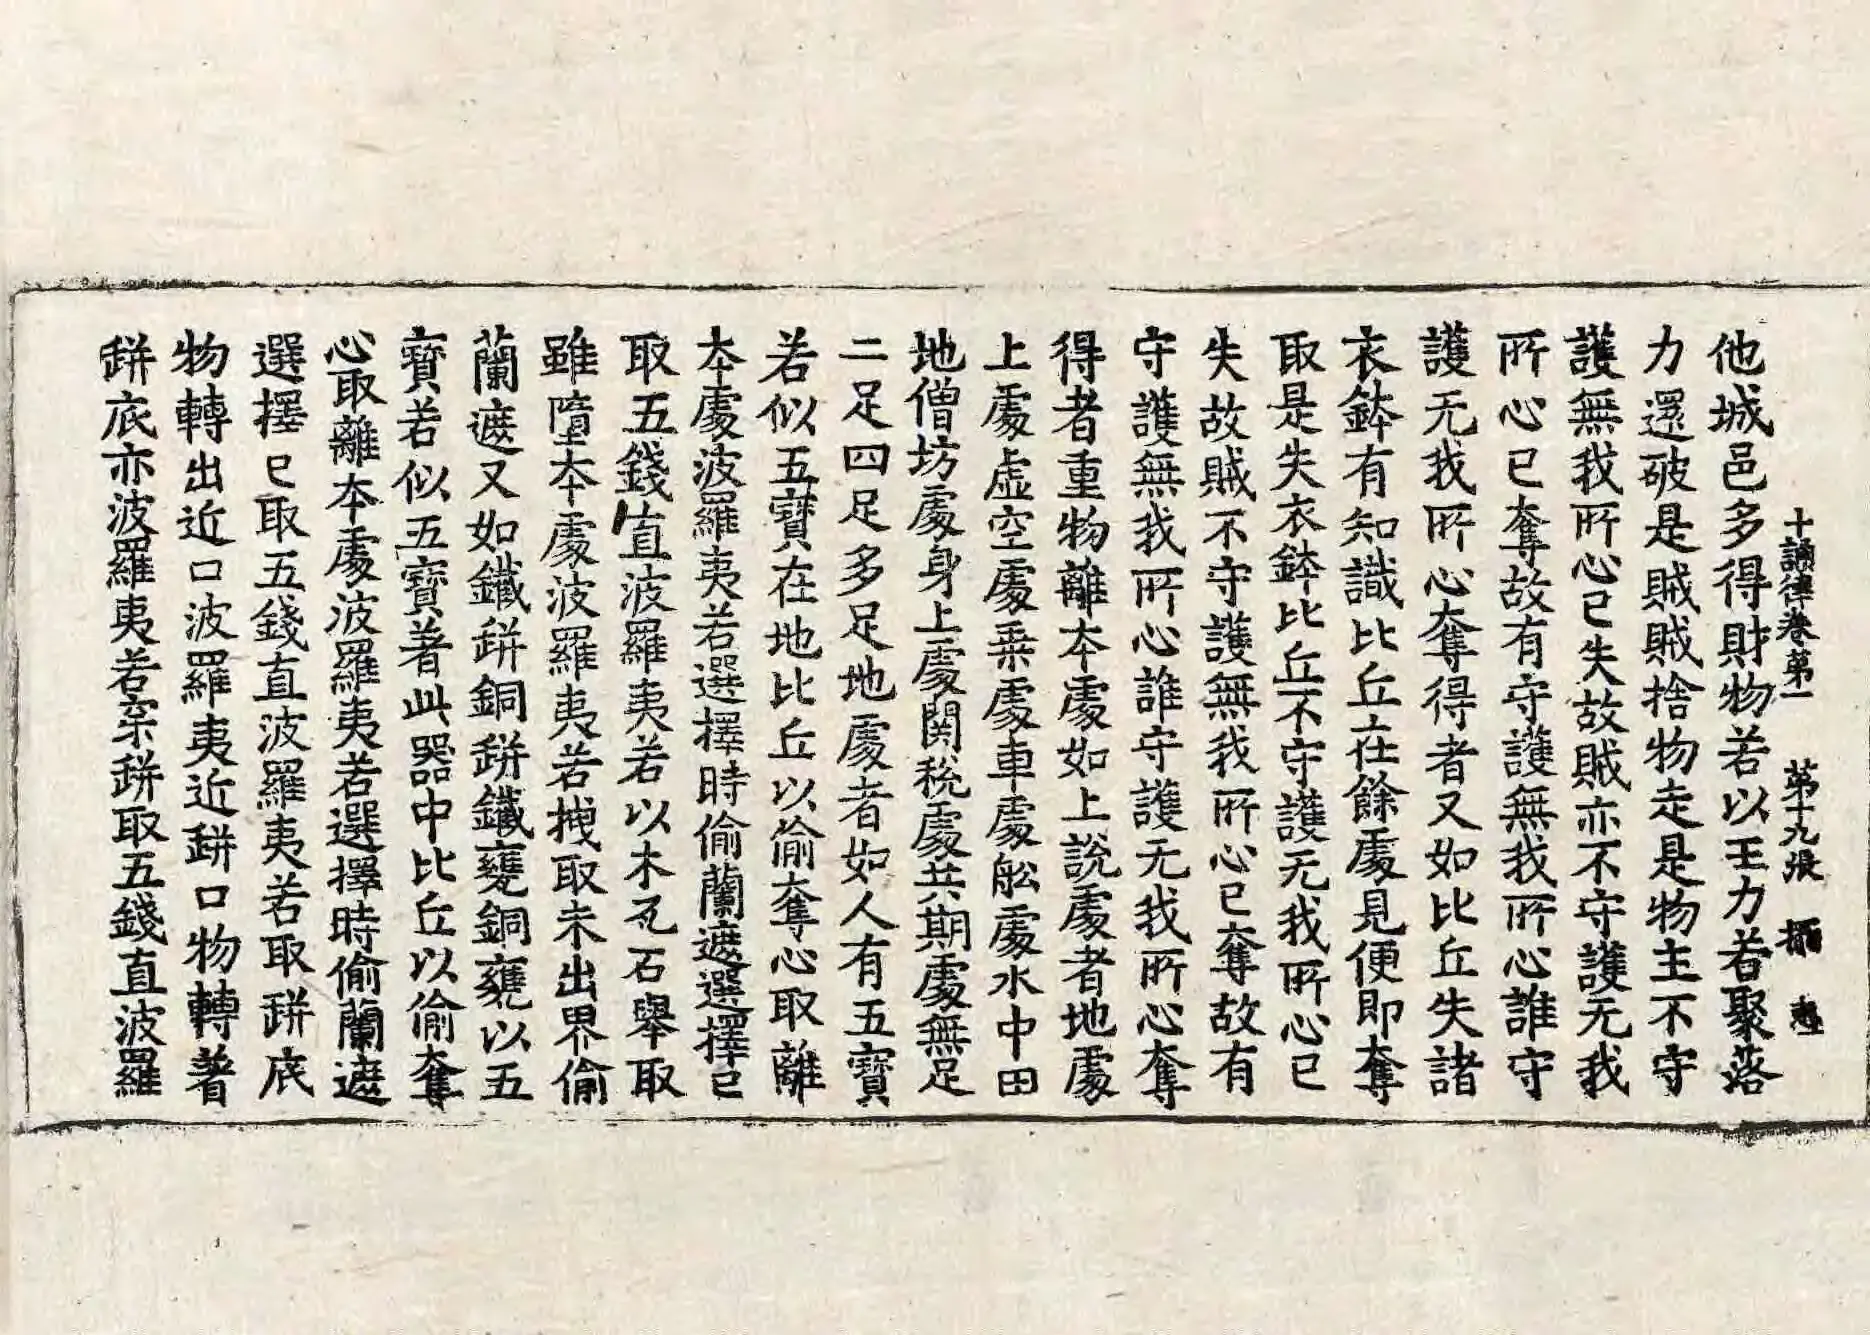 十誦律卷第一 第十九張
他城邑多得財物若以王力若聚落
力還破是賊賊捨物走是物主不守
護無我所心已失故賊亦不守護无我
所心已奪故有守護無我所心誰守
護无我所心奪得者又如比丘失諸
衣鉢有知識比丘在餘處見便即奪
取是失衣鉢比丘不守護无我所心已
失故賊不守護無我所心已奪故有
守護無我所心誰守護无我所心奪
得者重物離本處如上說處者地處
上處虛空處乘處車處舩處水中田
地僧坊處身上處関稅處共期處無足
二足四足多足地處者如人有五寶
若似五寶在地比丘以偷奪心取離
本處波羅夷若選擇時偷蘭遮選擇已
取五錢直波羅夷若以木瓦石舉取
雖墮本處波羅夷若拽取未出界偷
蘭遮又如鐵缾銅缾鐵甕銅甕以五
寶若似五寶著此器中比丘以偷奪
心取離本處波羅夷若選擇時偷蘭遮
選擇已取五錢直波羅夷若取缾底
物轉出近口波羅夷近缾口物轉著
缾底亦波羅夷若穿缾取五錢直波羅